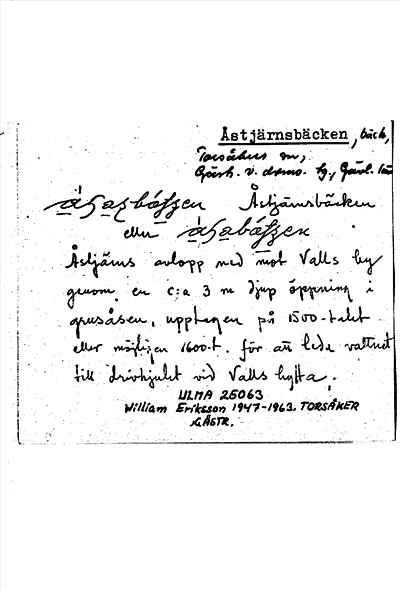 Åstjärnsbäcken, bäck,
Torsåkers sn,
Gästr. v. doms. hg, Gävl. län
Åstjärnsbäcken
eller
Åstjärns avlopp ned mot Valls by
genom en c:a 3 m djup öppning i
grusåsen, upptagen på 1500-talet
eller möjligen 1600-t. för att leda vattnet
till drivhjulet vid Valls hytta.
ULMA 25063
William Eriksson 1947-1963. TORSÅKER
GÄSTR.